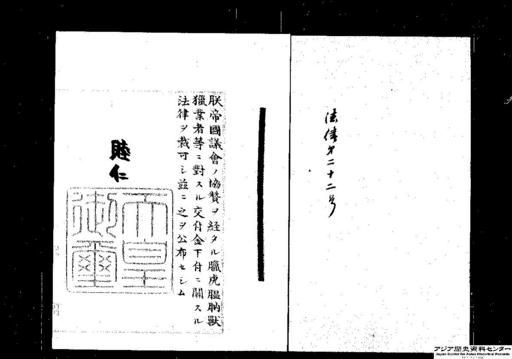 法律第二十二号
朕帝國議會ノ協贊ヲ經タル臘虎膃肭獸
獵業者等ニ對スル交付金下付ニ關スル
法律ヲ裁可シ茲ニ之ヲ公布セシム
睦仁
天皇
御璽
アジア歴史資料センター
Japan Center for Asian Historical Records